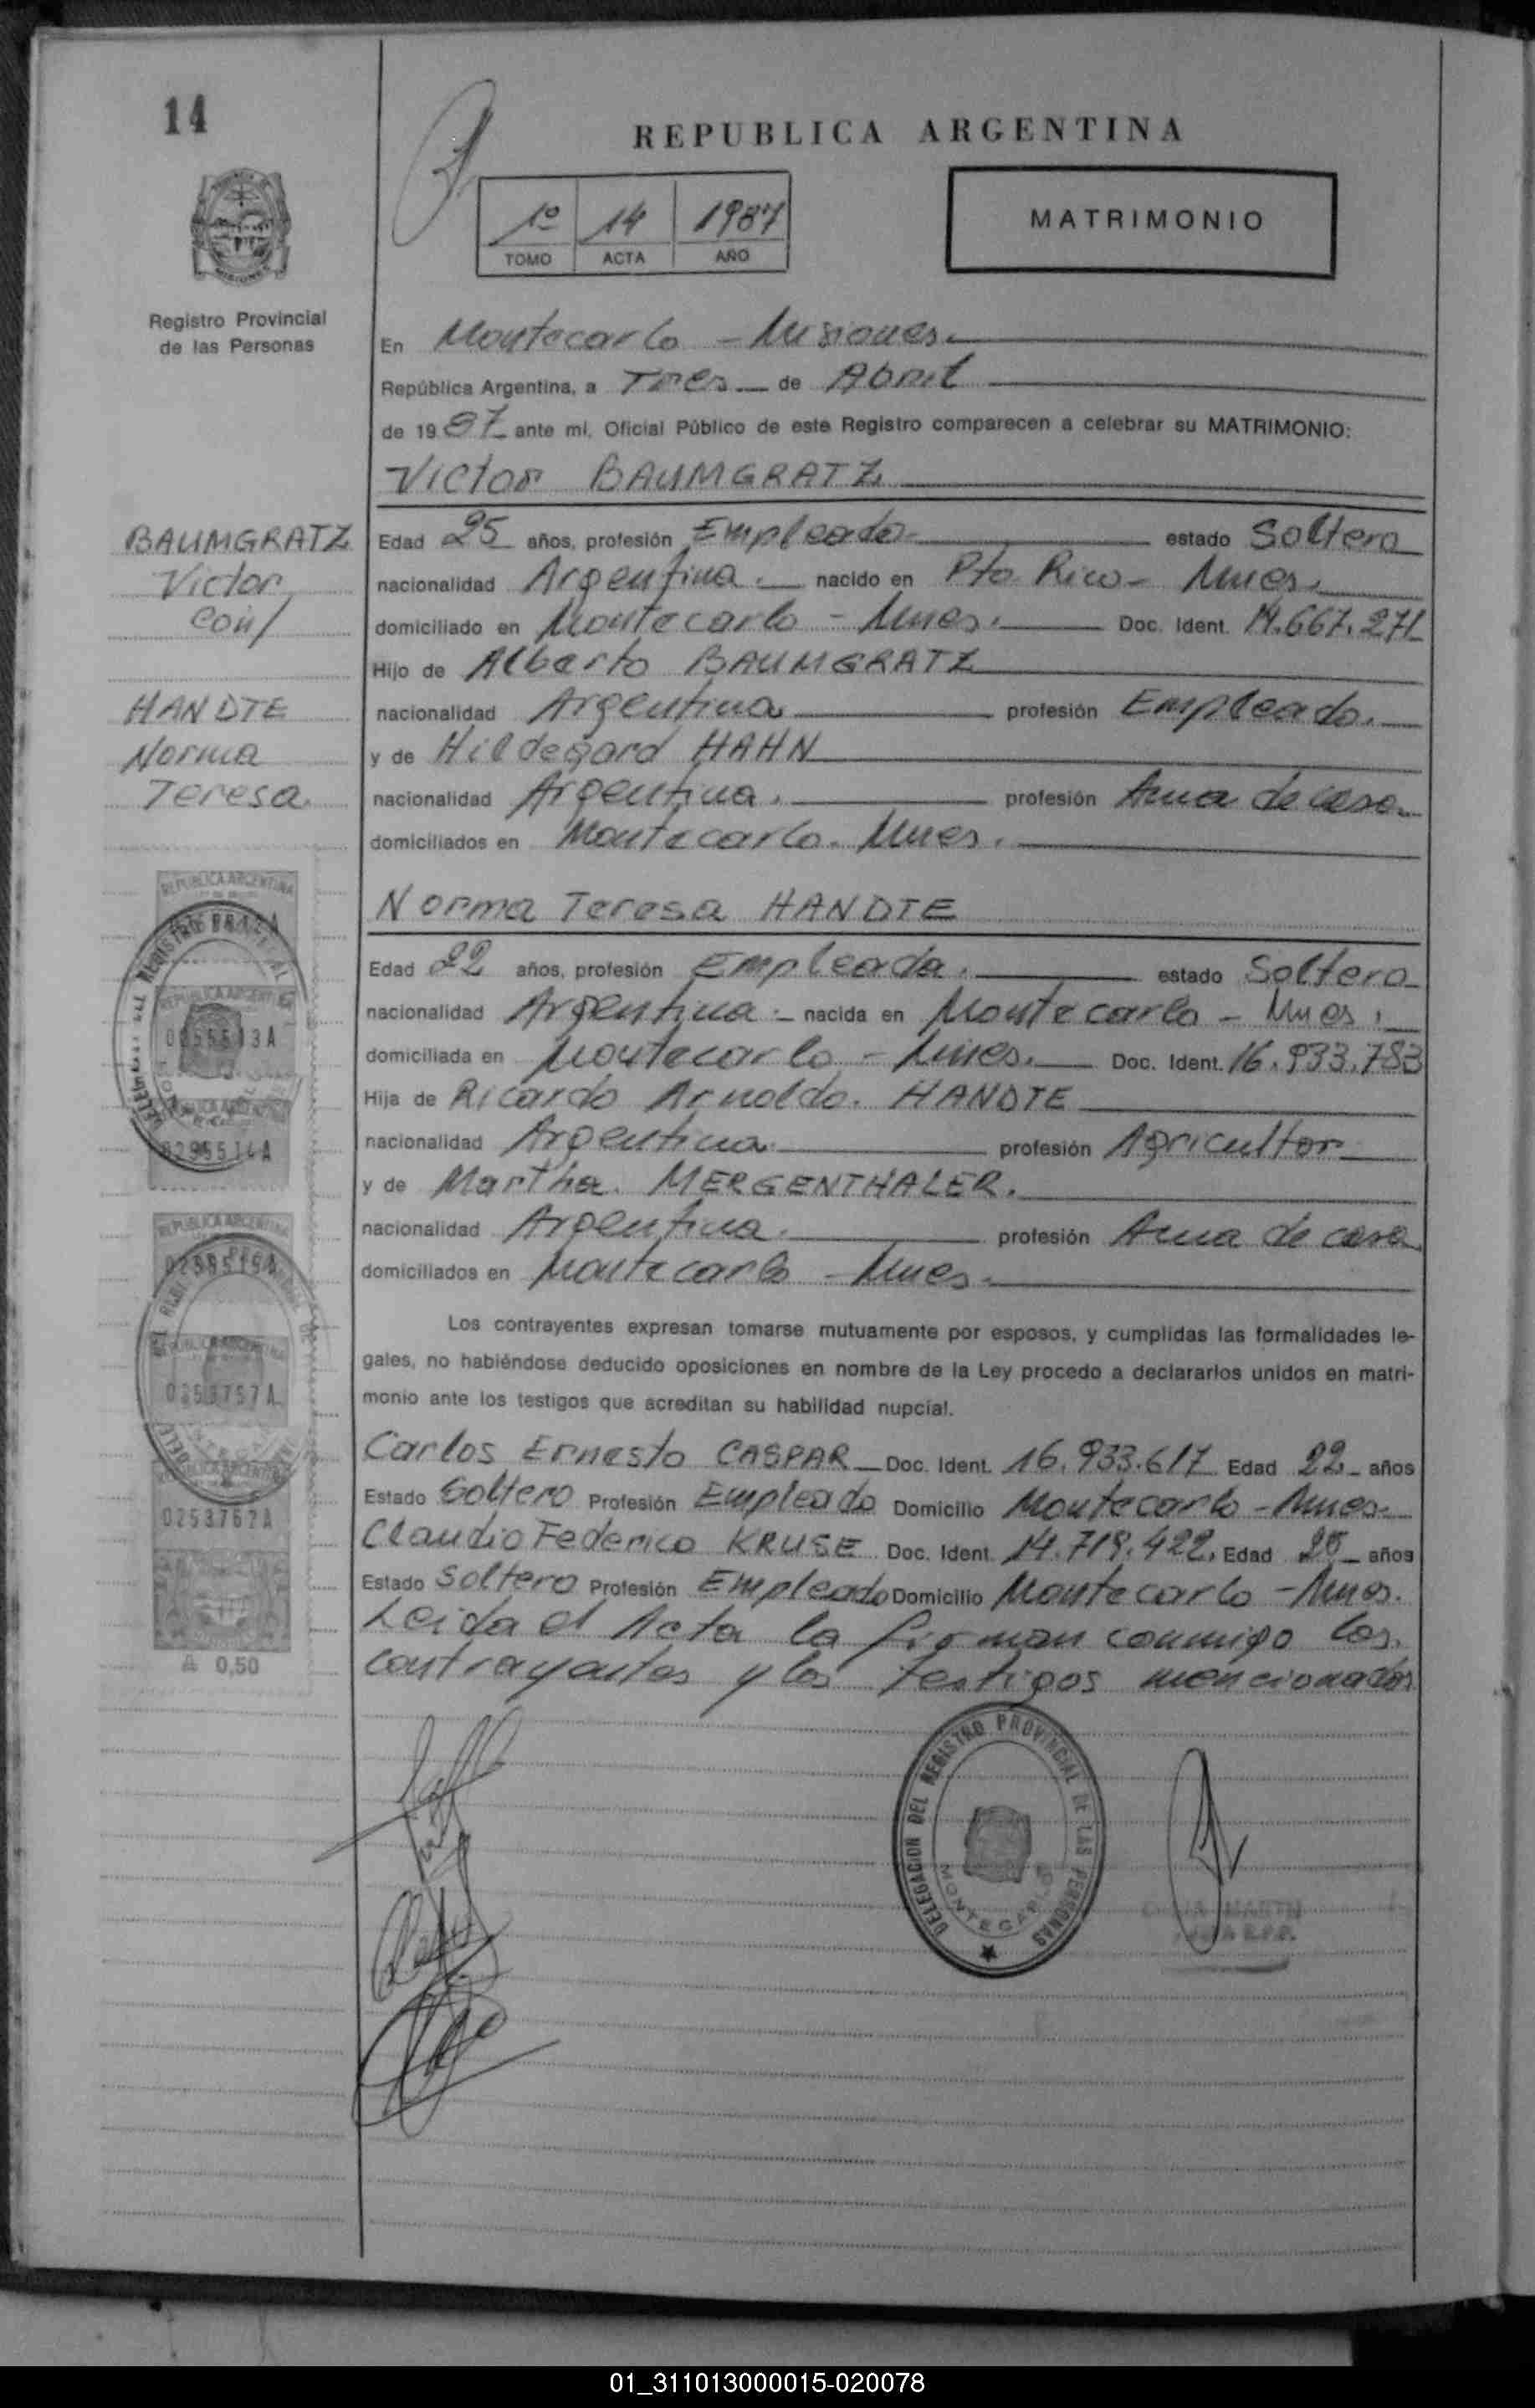 14
REPUBLICA ARGENTINA
1º 14 1987
TOMO ACTA AÑO
MATRIMONIO
Registro Provincial
de las Personas
En Montecarlo - Misiones.
República Argentina, a Tres de Abril
de 1987 ante mi, Oficial Público de este Registro comparecen a celebrar su MATRIMONIO:
Victor BAUMGRATZ
BAUMGRATZ
Victor
con/
HANDTE
Norma
Teresa.
Edad 25 años, profesión Empleado estado Soltero
nacionalidad Argentina. nacido en Pto. Rico - Mnes.
domiciliado en Montecarlo - Mnes. Doc. Ident. 14.667.271
Hijo de Alberto BAUMGRATZ
nacionalidad Argentina profesión Empleado.
y de Hildegard HAHN
nacionalidad Argentina. profesión Ama de casa
domiciliados en Montecarlo. Mnes.
Norma Teresa HANDTE
Edad 22 años, profesión Empleada. estado Soltera
nacionalidad Argentina. nacida en Montecarlo - Mnes.
domiciliada en Montecarlo - Mnes. Doc. Ident. 16.933.783
Hija de Ricardo Arnoldo. HANDTE
nacionalidad Argentina profesión Agricultor
y de Martha. MERGENTHALER.
nacionalidad Argentina. profesión Ama de casa
domiciliados en Montecarlo - Mnes.
Los contrayentes expresan tomarse mutuamente por esposos, y cumplidas las formalidades le-
gales, no habiéndose deducido oposiciones en nombre de la Ley procedo a declararlos unidos en matri-
monio ante los testigos que acreditan su habilidad nupcial.
Carlos Ernesto CASPAR Doc. Ident. 16.933.617 Edad 22 años
Estado Soltero Profesión Empleado Domicilio Montecarlo - Mnes.
Claudio Federico KRUSE Doc. Ident. 14.719.422. Edad años
Estado Soltero Profesión Empleado Domicilio Montecarlo - Mnes.
Leida el Acta la firman conmigo los
contrayentes y los testigos mencionados
REPUBLICA ARGENTINA
REPUBLICA ARGENTINA
REPUBLICA ARGENTINA
0253757A
0253762A
A 0,50
DELEGACION DEL REGISTRO PROVINCIAL DE LAS PERSONAS
MONTECARLO
01_311013000015-020078